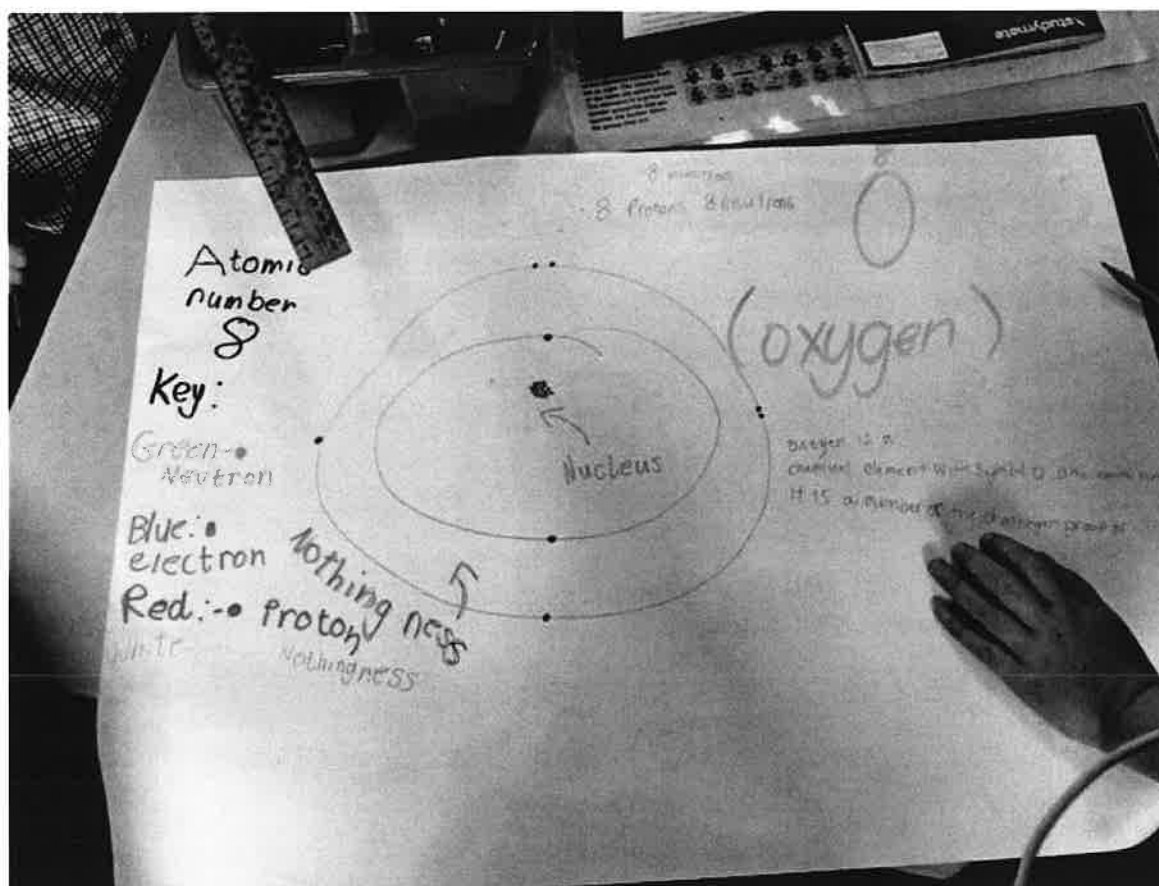 studymate
8
8 Protons 8 neutrons
8
O
(oxygen)
Atomic
number
8
Key:
Green-
Neutron
Blue:
electron
Red:- Proton
White
Nothingness
Nothing ness
Nucleus
oxygen is a
chemical element with symbol O
It is a member of the chalcogen group